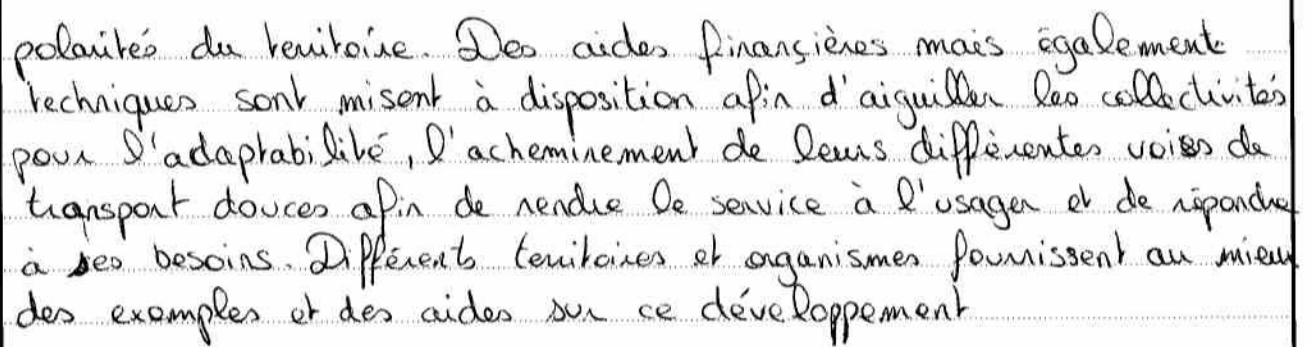 polarités du territoire. Des aides finançières mais également
techniques sont misent à disposition afin d'aiguiller les collectivités
pour l'adaptabilité, l'acheminement de leurs différentes voies de
transport douces afin de rendre le service à l'usager et de répondre
à ses besoins. Différents territoires et organismes fournissent au mieux
des exemples et des aides sur ce développement